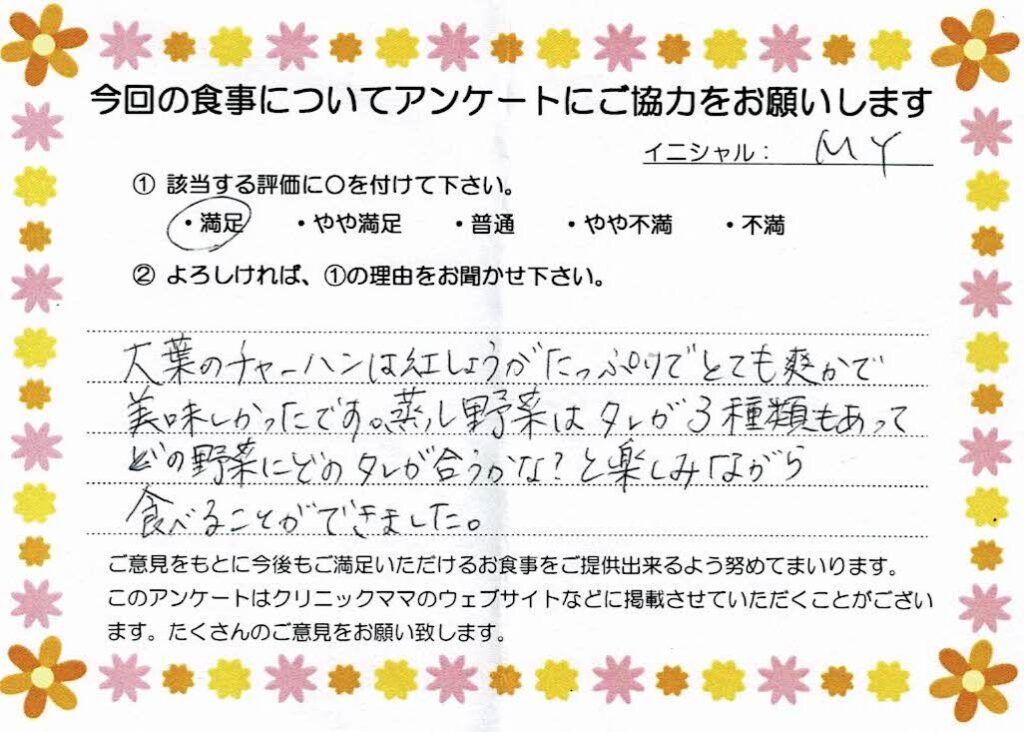 今回の食事についてアンケートにご協力をお願いします
イニシャル： MY
① 該当する評価に○を付けて下さい。
・満足 ・やや満足 ・普通 ・やや不満 ・不満
② よろしければ、①の理由をお聞かせ下さい。
大葉のチャーハンは紅しょうがたっぷりでとても爽かで
美味しかったです。蒸し野菜はタレが3種類もあって
どの野菜にどのタレが合うかな?と楽しみながら
食べることができました。
ご意見をもとに今後もご満足いただけるお食事をご提供出来るよう努めてまいります。
このアンケートはクリニックママのウェブサイトなどに掲載させていただくことがござい
ます。たくさんのご意見をお願い致します。